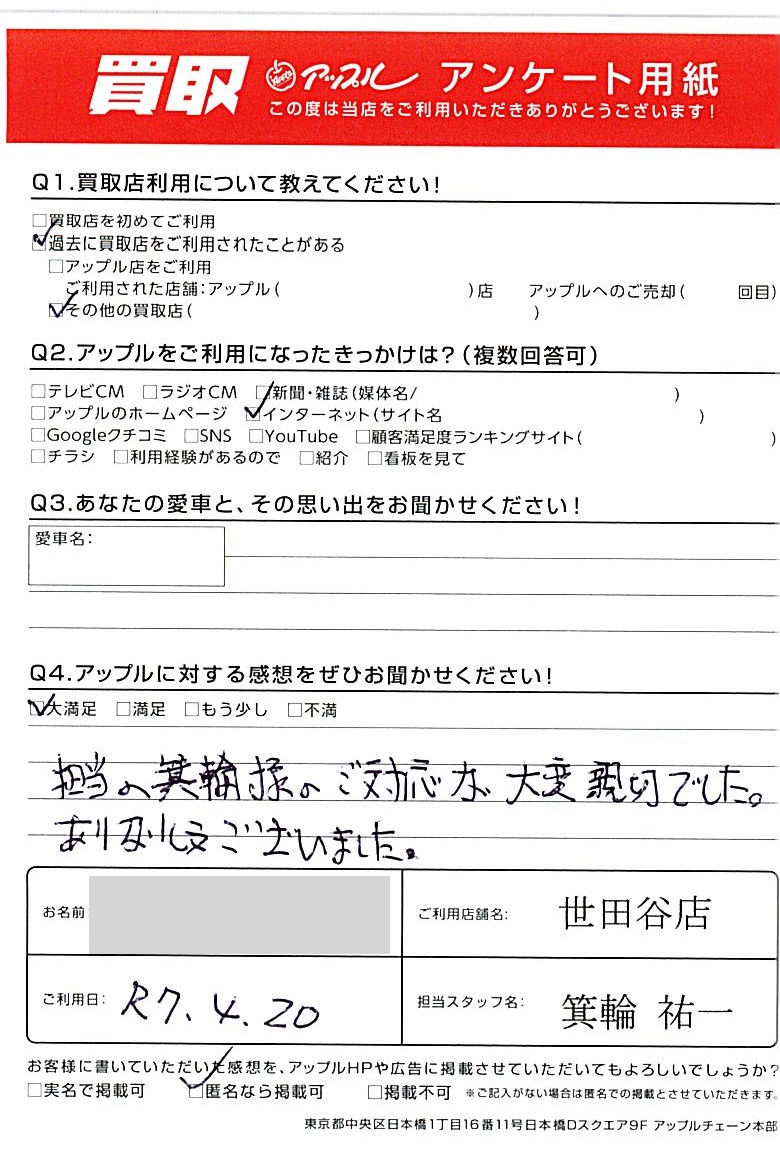 買取 アップル アンケート用紙
この度は当店をご利用いただきありがとうございます!
Q1.買取店利用について教えてください!
□買取店を初めてご利用
☑過去に買取店をご利用されたことがある
□アップル店をご利用
ご利用された店舗:アップル( )店 アップルへのご売却( 回目)
☑その他の買取店( )
Q2.アップルをご利用になったきっかけは?(複数回答可)
□テレビCM □ラジオCM □新聞・雑誌(媒体名/ )
□アップルのホームページ ☑インターネット(サイト名 )
□Googleクチコミ □SNS □YouTube □顧客満足度ランキングサイト( )
□チラシ □利用経験があるので □紹介 □看板を見て
Q3.あなたの愛車と、その思い出をお聞かせください!
愛車名:
Q4.アップルに対する感想をぜひお聞かせください!
☑大満足 □満足 □もう少し □不満
担当の箕輪様のご対応が大変親切でした。
ありがとうございました。
お名前
ご利用店舗名: 世田谷店
ご利用日: R7.4.20
担当スタッフ名: 箕輪 祐一
お客様に書いていただいた感想を、アップルHPや広告に掲載させていただいてもよろしいでしょうか?
□実名で掲載可 ☑匿名なら掲載可 □掲載不可 ※ご記入がない場合は匿名での掲載とさせていただきます。
東京都中央区日本橋1丁目16番11号日本橋Dスクエア9F アップルチェーン本部